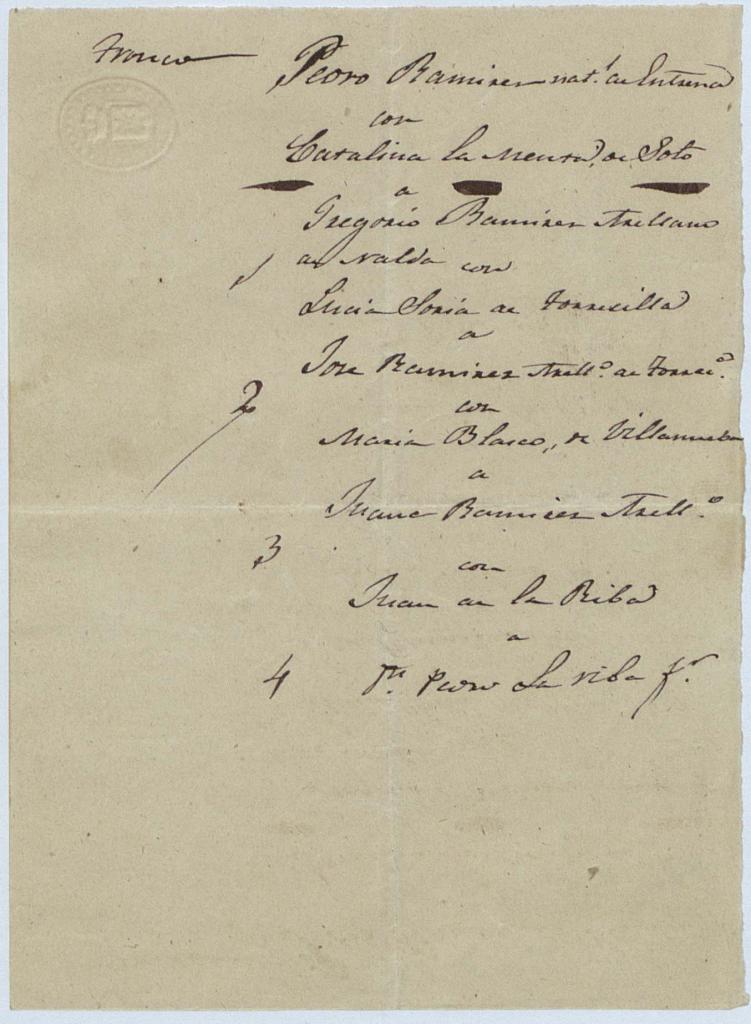 Tronco
Pedro Ramirez nat.l de Entrena
con
Catalina la Menta, de Soto
a
Gregorio Ramirez Arellano
1 de Nalda con
Lucia Soria de Torrecilla
a
Jose Ramirez Arell.o de Torrec.a
2 con
Maria Blasco, de Villanueba
a
Juana Ramirez Arell.o
3 con
Juan de la Riba
a
4 Dn. Pedro La riba